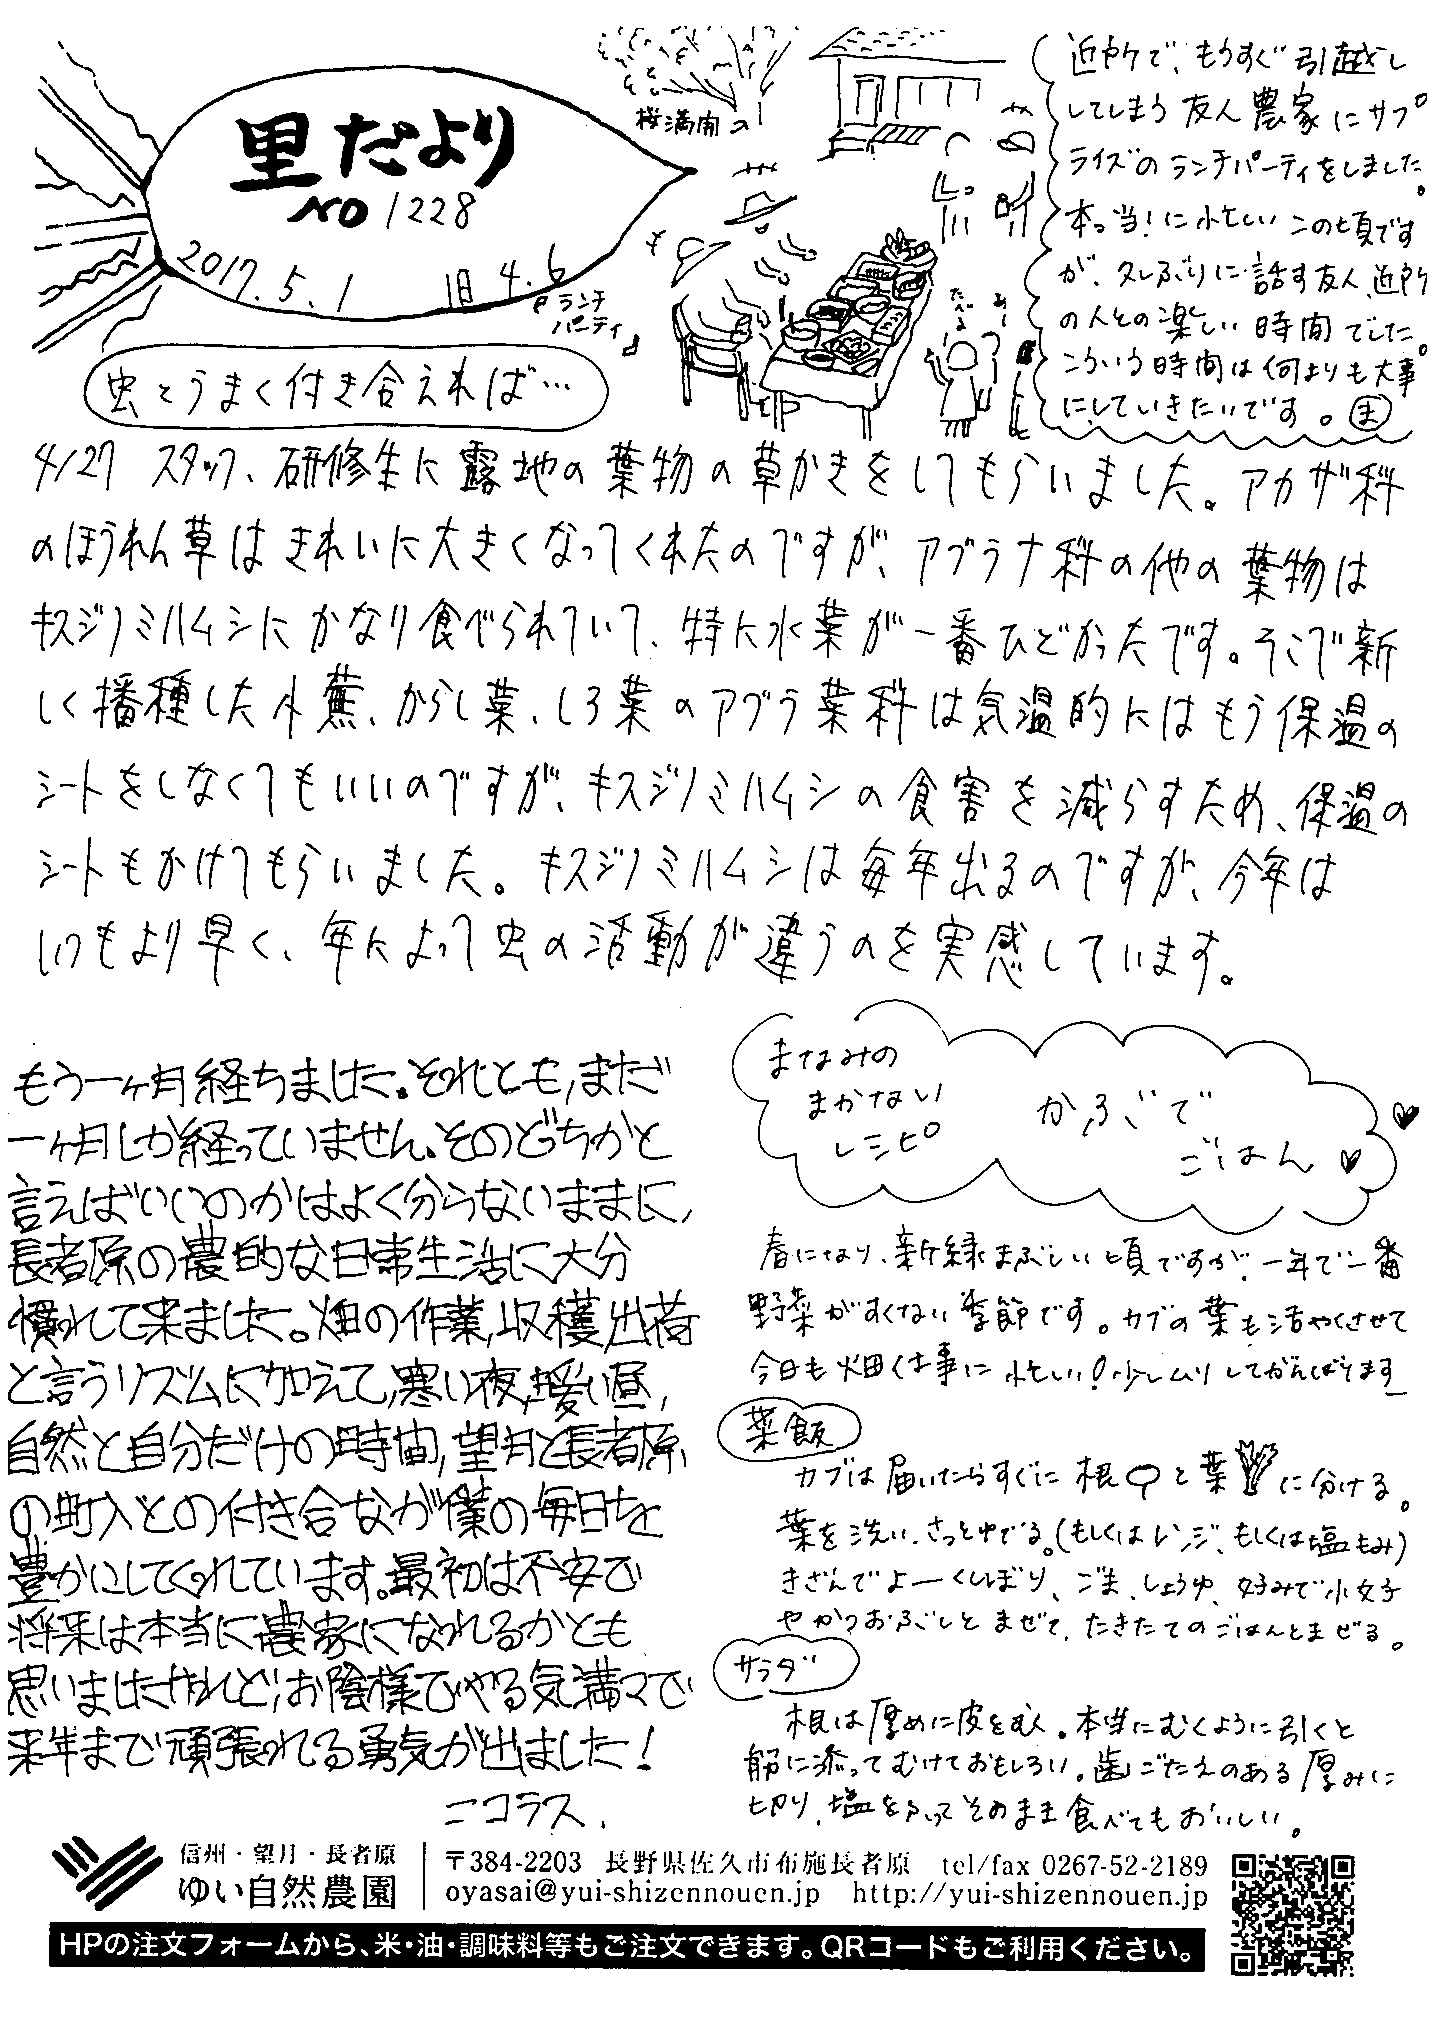 里だより
NO 1228
2017.5.1 旧4.6
桜満開の
ランチ
パーティ♪
たべる
近所で、もうすぐ引越し
してしまう友人農家にサプ
ライズのランチパーティをしました。
本っ当!に忙しいこの頃です
が、久しぶりに話す友人、近所
の人との楽しい時間でした。
こういう時間は何よりも大事
にしていきたいです。ま
虫とうまく付き合えれば…
4/27 スタッフ、研修生に露地の葉物の草かきをしてもらいました。アカザ科
のほうれん草はきれいに大きくなってくれたのですが、アブラナ科の他の葉物は
キスジノミハムシにかなり食べられていて、特に水菜が一番ひどかったです。そこで新
しく播種した小蕪、からし菜、しろ菜のアブラ菜科は気温的にはもう保温の
シートをしなくてもいいのですが、キスジノミハムシの食害を減らすため、保温の
シートもかけてもらいました。キスジノミハムシは毎年出るのですが、今年は
いつもより早く、年によって虫の活動が違うのを実感しています。
もう一ヶ月経ちました。それとも、まだ
一ヶ月しか経っていません。そのどっちかと
言えばいいのかはよく分らないままに、
長者原の農的な日常生活に大分
慣れて来ました。畑の作業,収穫,出荷
と言うリズムに加えて,寒い夜,暖い昼,
自然と自分だけの時間,望月と長者原
の町人との付き合なが僕の毎日を
豊かにしてくれています。最初は不安で
将来は本当に農家になれるかとも
思いましたけれど,お陰様でやる気満々で
来年まで頑張れる勇気が出ました!
ニコラス.
まなみの
まかない
レシピ
かぶで
ごはん
春になり、新緑まぶしい頃ですが、一年で一番
野菜がすくない季節です。カブの葉も活やくさせて
今日も畑仕事に忙しい!少しムリしてがんばります
菜飯
カブは届いたらすぐに根と葉に分ける。
葉を洗い、さっとゆでる。(もしくはレンジ、もしくは塩もみ)
きざんでよーくしぼり、ごま、しょうゆ、好みで小女子
やかつおぶしとまぜて、たきたてのごはんとまぜる。
サラダ
根は厚めに皮をむく。本当にむくように引くと
筋に添ってむけておもしろい。歯ごたえのある厚みに
切り、塩をふってそのまま食べてもおいしい。
信州・望月・長者原
ゆい自然農園
〒384-2203 長野県佐久市布施長者原 tel/fax 0267-52-2189
oyasai@yui-shizennouen.jp http://yui-shizennouen.jp
HPの注文フォームから、米・油・調味料等もご注文できます。QRコードもご利用ください。